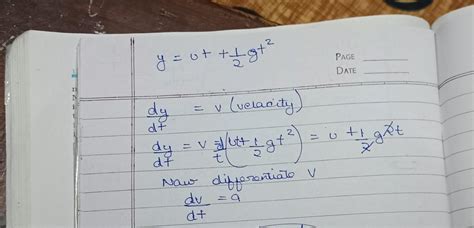 y = ut + 1/2 gt²
PAGE
DATE
dy/dt = v (velocity)
dy/dt = v d/t (ut + 1/2 gt²) = u + 1/2 g2t
Now differentiate V
dv/dt = a